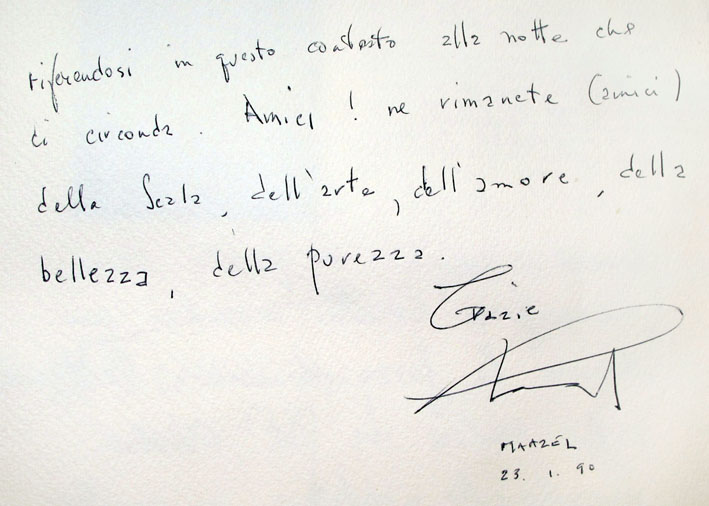 riferendosi in questo contesto alla notte che
ci circonda. Amici! ne rimanete (amici)
della Scala, dell'arte, dell'amore, della
bellezza, della purezza.
Grazie
MAAZEL
23. 1. 90